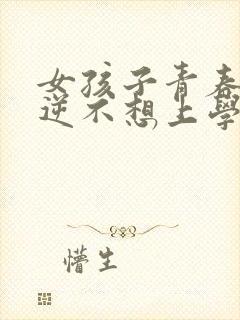 女孩子青春
逆不想上学
懵生